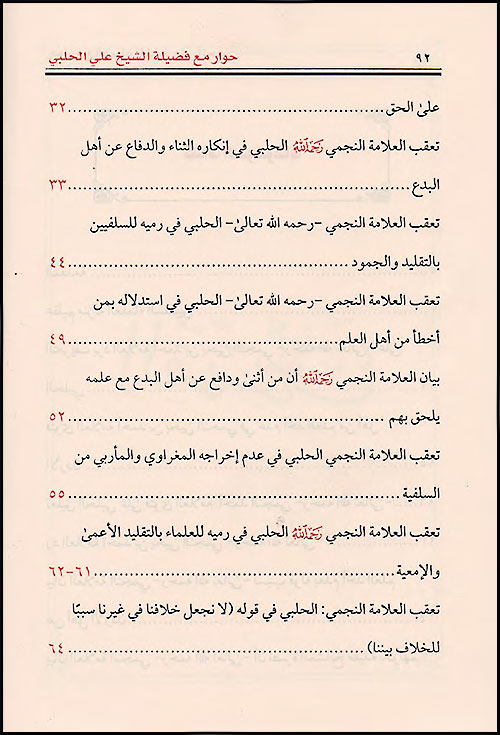 ٩٢ حوار مع فضيلة الشيخ علي الحلبي
علىٰ الحق ................................ ٣٢
تعقب العلامة النجمي رحمه الله الحلبي في إنكاره الثناء والدفاع عن أهل
البدع ................................ ٣٣
تعقب العلامة النجمي -رحمه الله تعالىٰ- الحلبي في رميه للسلفيين
بالتقليد والجمود ................................ ٤٤
تعقب العلامة النجمي -رحمه الله تعالىٰ- الحلبي في استدلاله بمن
أخطأ من أهل العلم ................................ ٤٩
بيان العلامة النجمي رحمه الله أن من أثنىٰ ودافع عن أهل البدع مع علمه
يلحق بهم ................................ ٥٢
تعقب العلامة النجمي الحلبي في عدم إخراجه المغراوي والمأربي من
السلفية ................................ ٥٥
تعقب العلامة النجمي رحمه الله الحلبي في رميه للعلماء بالتقليد الأعمىٰ
والإمعية ................................ ٦١-٦٢
تعقب العلامة النجمي: الحلبي في قوله (لا نجعل خلافنا في غيرنا سببًا
للخلاف بيننا) ................................ ٦٤